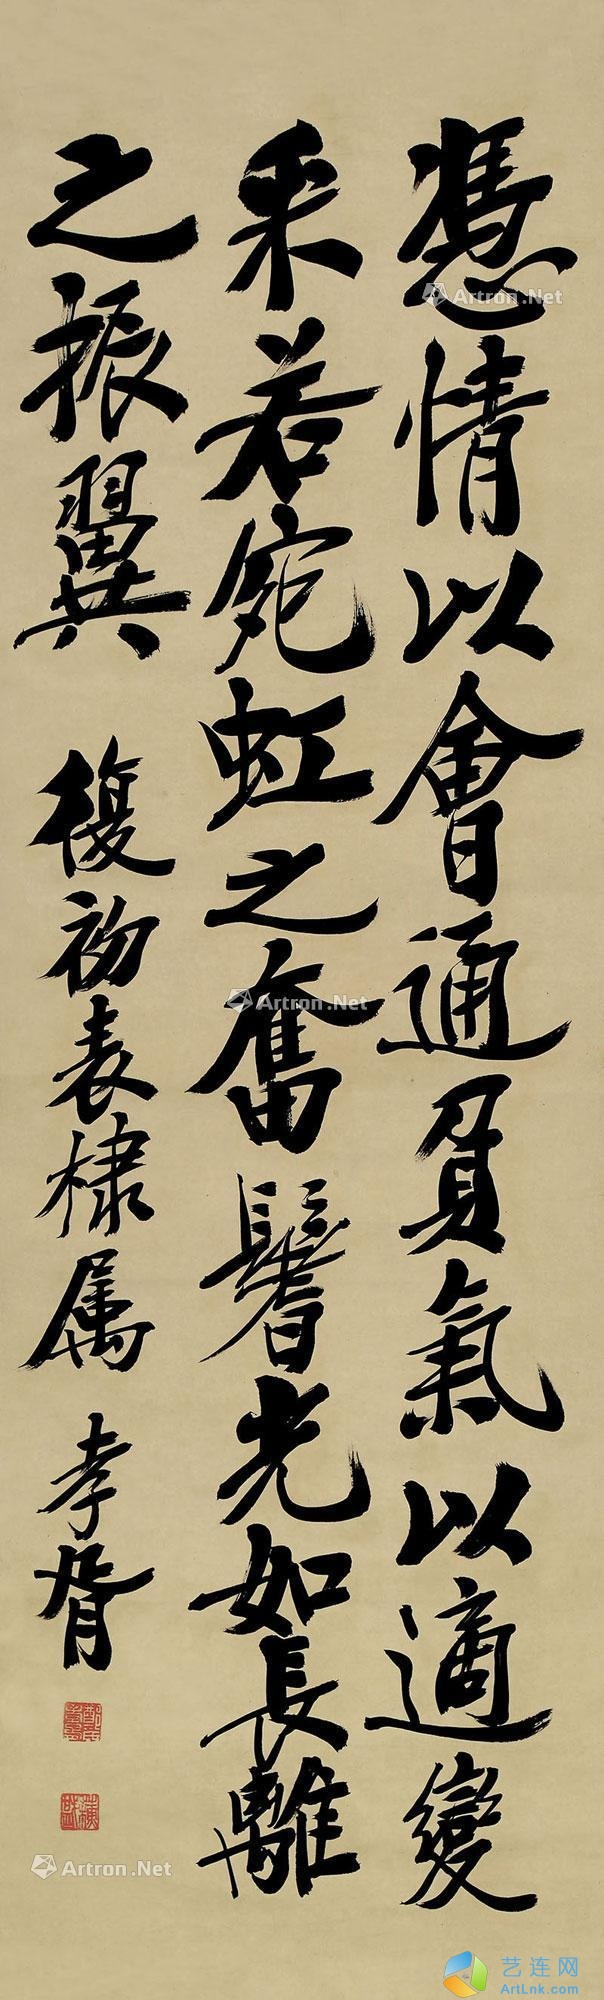 憑情以會通負氣以適變
采若宛虹之奮鬐光如長離
之振翼 復初表棣属 孝胥
Artron.Net
Artron.Net
Artron.Net
艺连网
ArtLnk.com